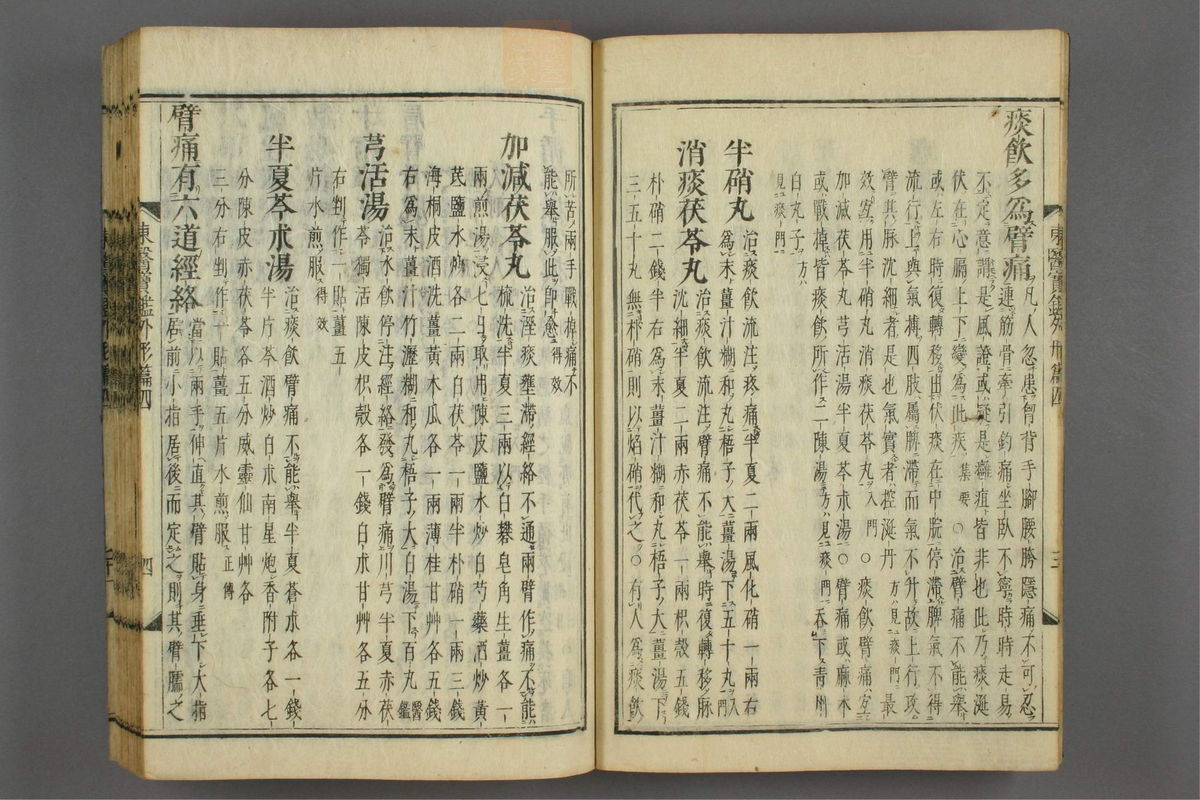 痰飲多爲臂痛 凡人忽患胷背手腳腰胯隱痛不可忍
連筋骨牽引釣痛坐臥不寧時時走易
不定意謂是風證或疑是癰疽皆非也此乃痰涎
伏在心膈上下變爲此疾集要○治臂痛不能舉
或左右時復轉移由伏痰在中脘停滯脾氣不得
流行上與氣搏四肢屬脾滯而氣不升故上行攻
臂其脉沈細者是也氣實者控涎丹方見痰門最
效宜用半硝丸消痰茯苓丸入門○痰飲臂痛宜
加減茯苓丸芎活湯半夏芩朮湯○臂痛或麻木
或戰掉皆痰飲所作二陳湯方見痰門吞下靑州
白丸子方見痰門
半硝丸 治痰飲流注疼痛半夏二兩風化硝一兩右
爲末薑汁糊和丸梧子大薑湯下五十丸入門
消痰茯苓丸 治痰飲流注臂痛不能舉時復轉移脉
沈細半夏二兩赤茯苓一兩枳殼五錢
朴硝二錢半右爲末薑汁糊和丸梧子大薑湯下
三五十丸無朴硝則以焰硝代之○有人爲痰飮
三
所苦兩手戰掉痛不
能舉服此卽愈得效
加減茯苓丸 治溼痰壅滯經絡不通兩臂作痛不能
梳洗半夏三兩以白礬皂角生薑各一
兩煎湯浸七日取用陳皮鹽水炒白芍藥酒炒黃
芪鹽水炒各二兩白茯苓一兩半朴硝一兩三錢
海桐皮酒洗薑黃木瓜各一兩薄桂甘艸各五錢
右爲末薑汁竹瀝糊和丸梧子大白湯下百丸醫鑑
芎活湯 治水飮停注經絡發爲臂痛川芎半夏赤茯
苓獨活陳皮枳殼各一錢白朮甘艸各五分
右剉作一貼薑五
片水煎服得效
半夏芩朮湯 治痰飮臂痛不能舉半夏蒼朮各一錢
半片芩酒炒白朮南星炮香附子各七
分陳皮赤茯苓各五分威靈仙甘艸各
三分右剉作一貼薑五片水煎服正傳
臂痛有六道經絡 當以兩手伸直其臂貼身垂下大指
居前小指居後而定之則其臂臑之
東醫寶鑑外形篇四
四